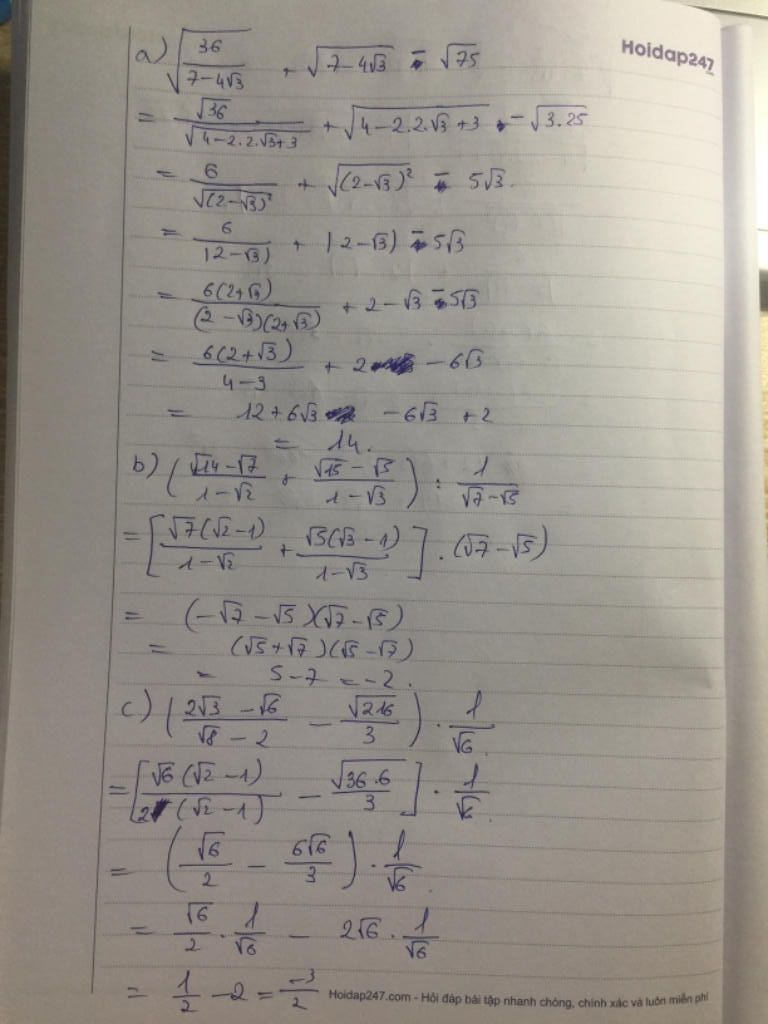 Hoidap247
a) √(36/(7-4√3)) + √(7-4√3) - √75
= √36/√(4-2.2.√3+3) + √(4-2.2.√3+3) - √(3.25)
= 6/√((2-√3)²) + √((2-√3)²) - 5√3.
= 6/|2-√3| + |2-√3| - 5√3
= 6(2+√3)/((2-√3)(2+√3)) + 2-√3 - 5√3
= 6(2+√3)/(4-3) + 2 - 6√3
= 12+6√3 - 6√3 + 2
= 14.
b) ((√14-√7)/(1-√2) + (√15-√5)/(1-√3)) : 1/(√7-√5)
= [√7(√2-1)/(1-√2) + √5(√3-1)/(1-√3)] . (√7-√5)
= (-√7-√5)(√7-√5)
= (√5+√7)(√5-√7)
= 5-7 = -2.
c.) ((2√3-√6)/(√8-2) - √216/3) . 1/√6.
= [√6(√2-1)/(2(√2-1)) - √(36.6)/3] . 1/√6.
= (√6/2 - 6√6/3) . 1/√6.
= √6/2 . 1/√6 - 2√6 . 1/√6
= 1/2 - 2 = -3/2
Hoidap247.com - Hỏi đáp bài tập nhanh chóng, chính xác và luôn miễn phí